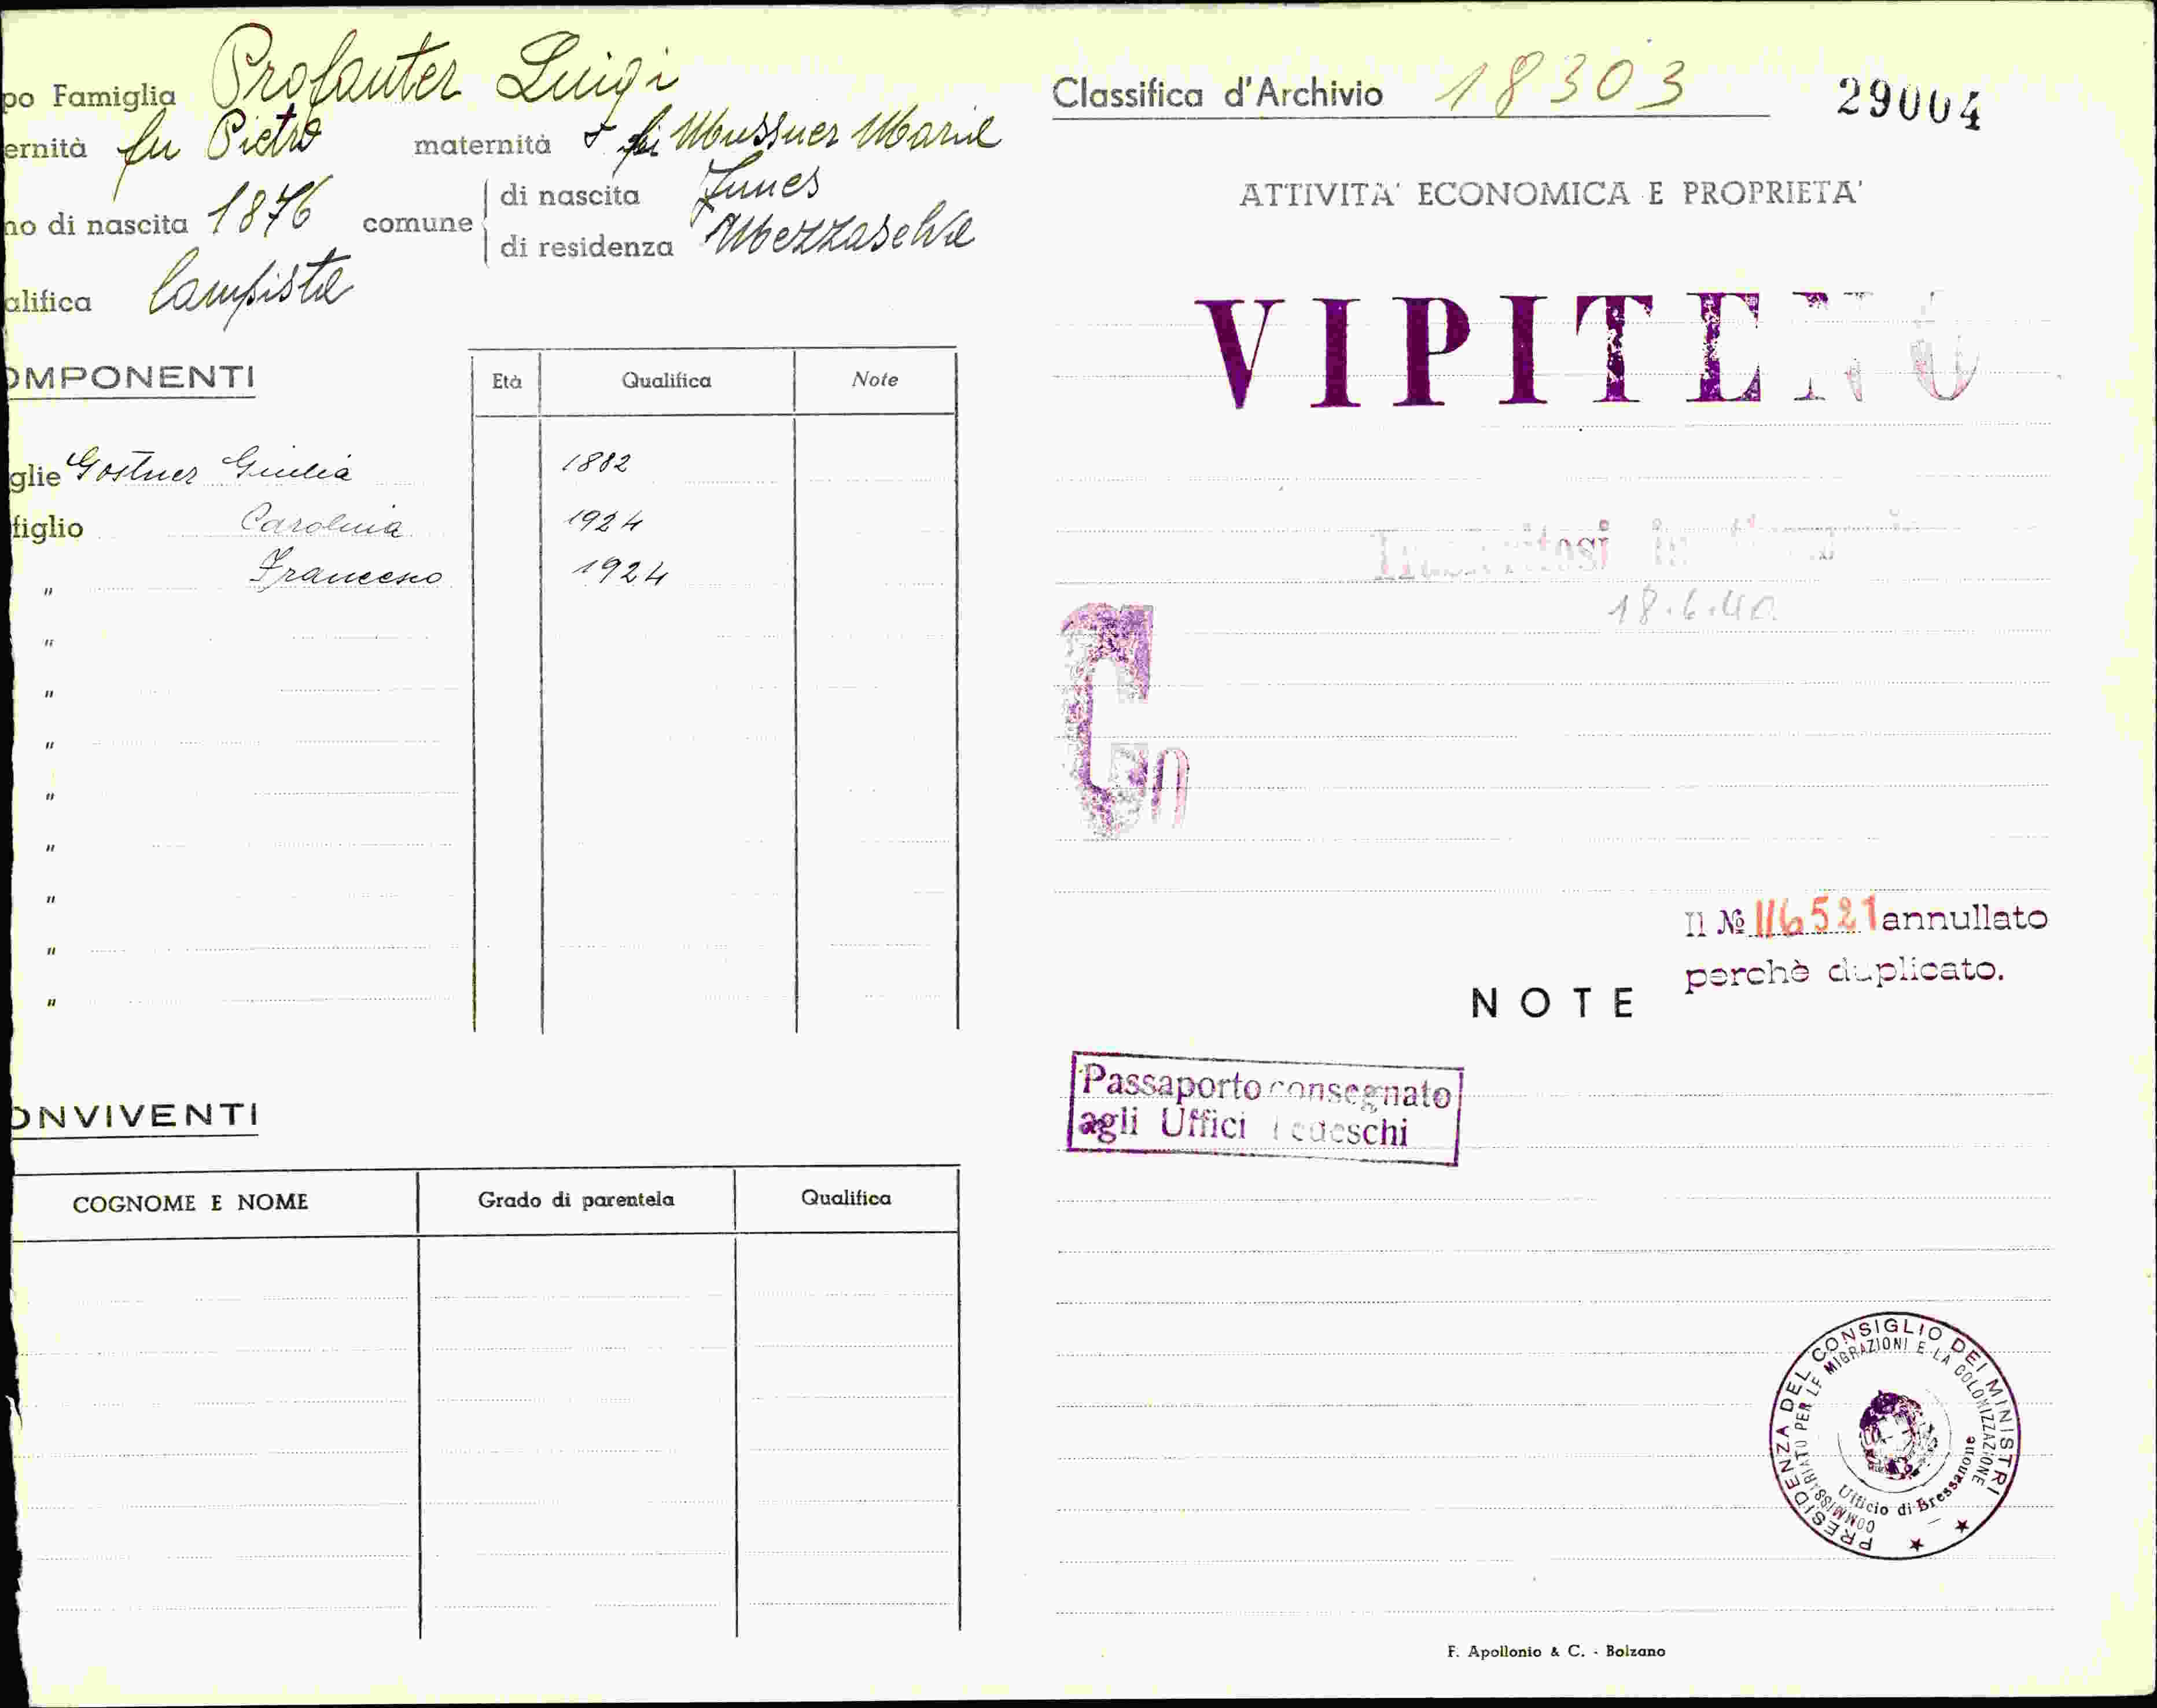 po Famiglia Profanter Luigi
ernità fu Pietro maternità fu Mussner Marie
no di nascita 1876 comune di nascita Funes
di residenza Mezzaselva
alifica Campista
OMPONENTI
Età Qualifica Note
glie Gostner Giulia 1882
figlio Carolina 1924
" Francesco 1924
"
"
"
"
"
"
"
"
ONVIVENTI
COGNOME E NOME Grado di parentela Qualifica
Classifica d'Archivio 18303 29004
ATTIVITA' ECONOMICA E PROPRIETA'
VIPITENO
18.6.40.
Il № 116521 annullato
perchè duplicato.
NOTE
Passaporto consegnato
agli Uffici Tedeschi
PRESIDENZA DEL CONSIGLIO DEI MINISTRI
COMMISSARIATO PER LE MIGRAZIONI E LA COLONIZZAZIONE
Ufficio di Bressanone
F. Apollonio & C. - Bolzano